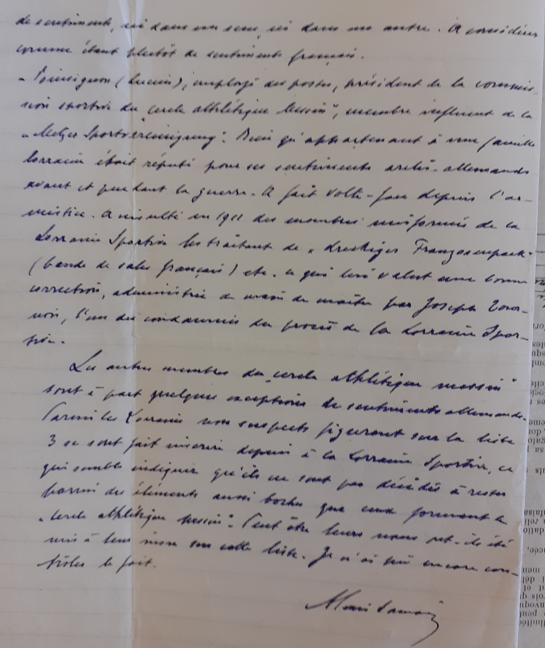 de sentiments, soit dans un sens, soit dans un autre. A considérer
comme étant plutôt de sentiments français.
- Poinsignon (Lucien), employé des postes, président de la commis-
sion sportive du "Cercle athlétique Messin", membre influent de la
"Metzer Sportvereinigung". Bien qu'appartenant à une famille
lorraine était réputé pour ses sentiments archi-allemands
avant et pendant la guerre. A fait volte-face depuis l'ar-
mistice. A insulté en 1911 des membres uniformés de la
Lorraine Sportive les traitant de "dreckiges Franzosenpack"
(bande de sales français) etc. ce qui lui valut une bonne
correction, administrée de main de maître par Joseph
l'un des condamnés du procès de la Lorraine Spor-
tive.
Les autres membres du "cercle athlétique messin"
sont à part quelques exceptions de sentiments allemands.
Parmi les Lorrains non suspects figurant sur la liste
3 se sont fait inscrire depuis à la Lorraine Sportive, ce
qui semble indiquer qu'ils ne sont pas décidés à rester
parmi des éléments aussi boches que ceux formant le
"cercle athlétique messin". Peut être leurs noms ont-ils été
mis à leur insu sur cette liste. Je n'ai pu encore con-
trôler le fait.